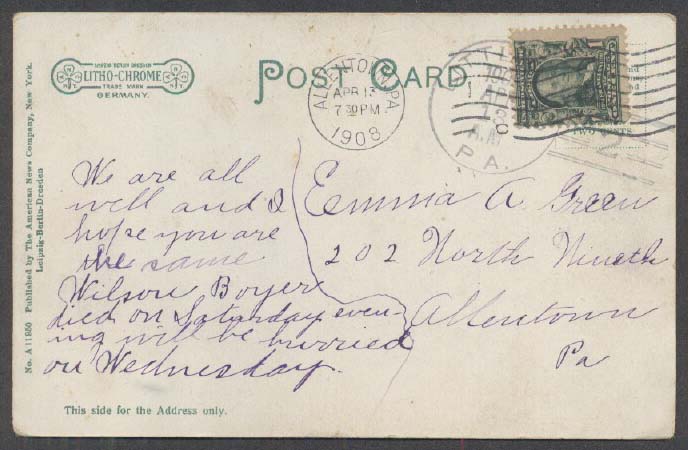 LITHO-CHROME
TRADE MARK
GERMANY.
POST CARD.
ALLENTOWN, PA.
APR 13
7 30 PM
1908
A.M.
PA.
TWO CENTS
No. A 11950 Published by The American News Company, New York.
Leipzig-Berlin-Dresden
We are all
well and I
hope you are
the same
Wilson Boyer
died on Saturday even-
ing will be burried
on Wednesday.
Emma A. Green
202 North Nineth
Allentown
Pa
This side for the Address only.